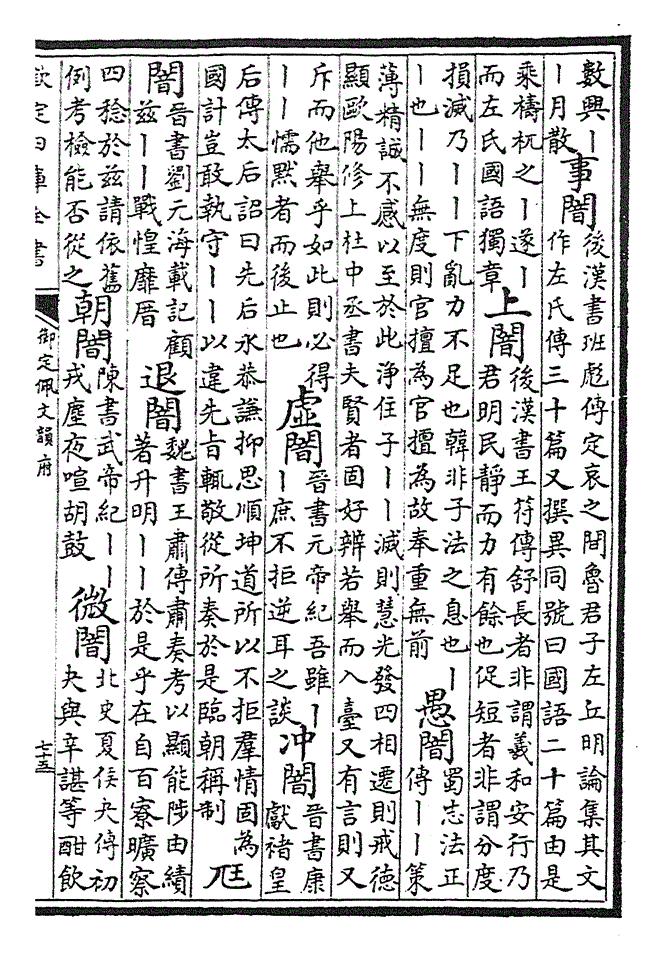 數興丨
丨月散
事闇
後漢書班彪傳定哀之間魯君子左丘明論集其文
作左氏傳三十篇又撰異同號曰國語二十篇由是
乘檮杌之丨遂丨
而左氏國語獨章
上闇
後漢書王符傳舒長者非謂羲和安行乃
君明民靜而力有餘也促短者非謂分度
損減乃丨丨下亂力不足也韓非子法之息也丨
丨也丨丨無度則官擅為官擅為故奉重無前
愚闇
蜀志法正
傳丨丨策
薄精誠不感以至於此淨住子丨丨滅則慧光發四相遷則戒德
顯歐陽修上杜中丞書夫賢者固好辨若舉而入臺又有言則又
斥而他舉乎如此則必得
丨丨懦默者而後止也
虛闇
晉書元帝紀吾雖丨
丨庶不拒逆耳之談
冲闇
晉書康
獻褚皇
后傳太后詔曰先后永恭謙抑思順坤道所以不拒羣情固為
國計豈敢執守丨丨以違先旨輒敬從所奏於是臨朝稱制
尫
闇
晉書劉元海載記顧
茲丨丨戰惶靡厝
退闇
魏書王肅傳肅奏考以顯能陟由績
著升明丨丨於是乎在自百寮曠察
四稔於茲請依舊
例考檢能否從之
朝闇
陳書武帝紀丨丨
戎塵夜喧胡鼓
微闇
北史夏侯夬傳初
夬與辛諶等酣飲
欽定四庫全書
御定佩文韻府
七十五